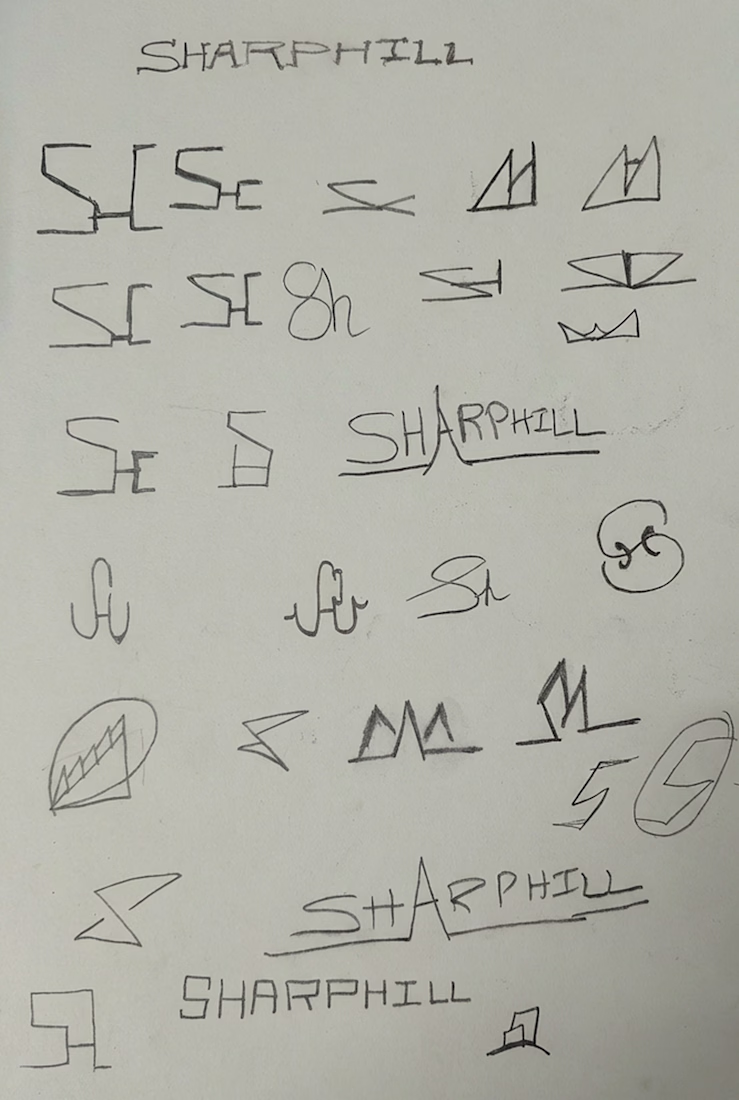 SHARPHILL
Sh
SHARPHILL
Sh
S S
SHARPHILL
SHARPHILL